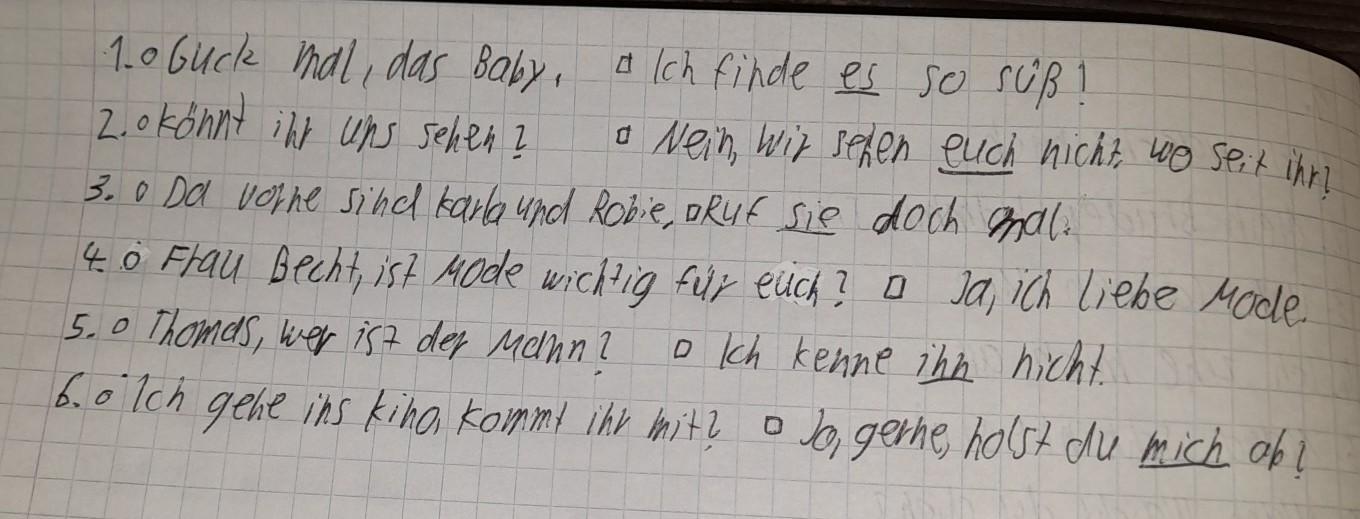 1. o Guck mal, das Baby. □ Ich finde es so süß!
2. o könnt ihr uns sehen? □ Nein, wir sehen euch nicht, wo seit ihr?
3. o Da vorne sind Karla und Robie, □ Ruf sie doch mal.
4. o Frau Becht, ist Mode wichtig für euch? □ Ja, ich liebe Mode.
5. o Thomas, wer ist der Mann? □ Ich kenne ihn nicht.
6. o Ich gehe ins kino, kommt ihr mit? □ Ja, gerne, holst du mich ab?